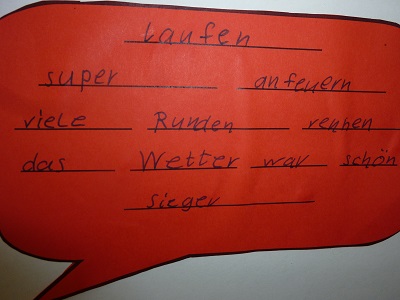 Laufen
super anfeuern
viele Runden rennen
das Wetter war schön
sieger